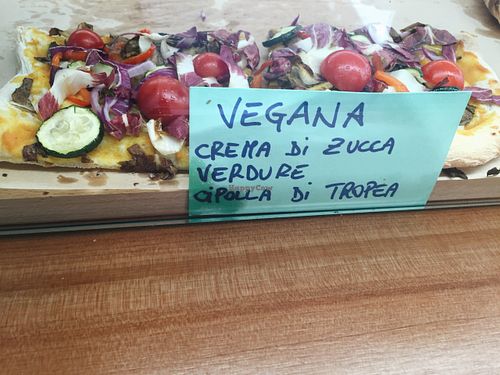 VEGANA
CREMA DI ZUCCA
VERDURE
CIPOLLA DI TROPEA
HappyCow